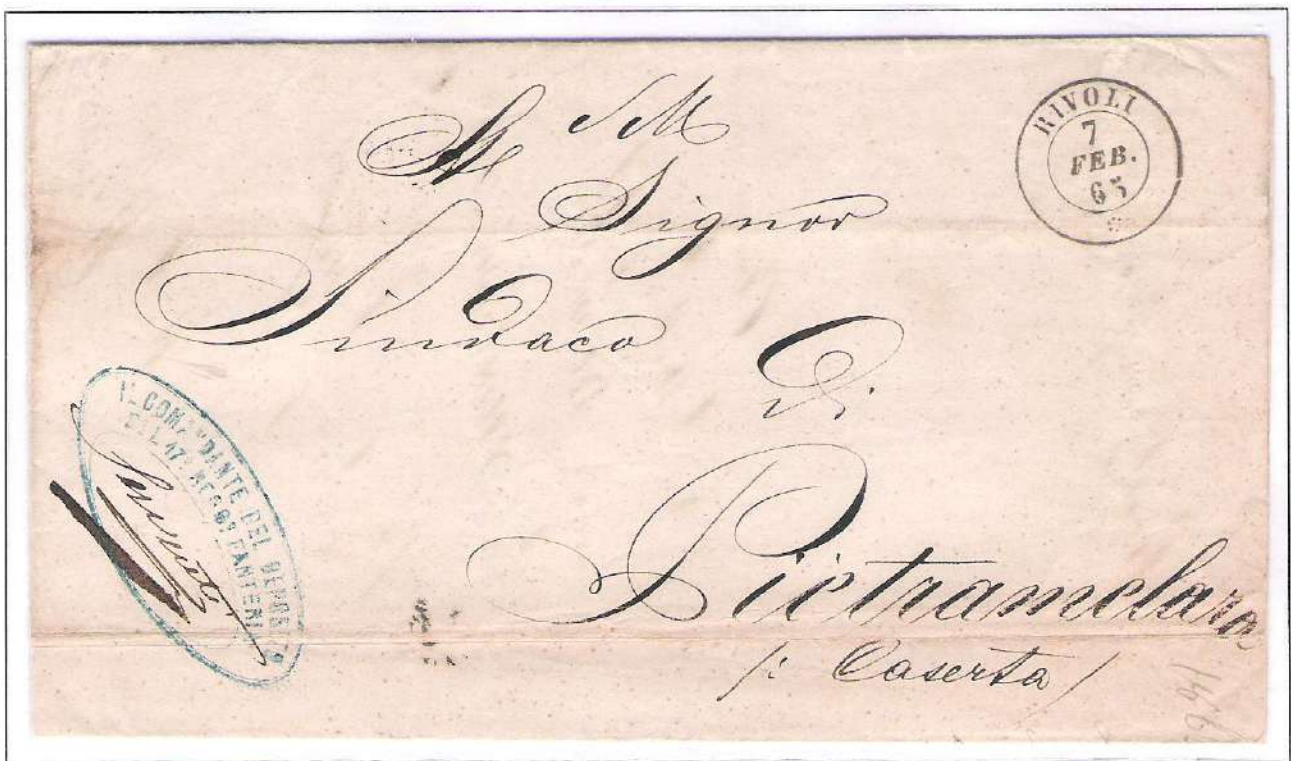 RIVOLI
7
FEB.
65
Al
Signor
Sindaco
Di
Pietramelara
/: Caserta /
IL COMANDANTE DEL DEPOSITO
DEL 17º REGGº FANTERIA